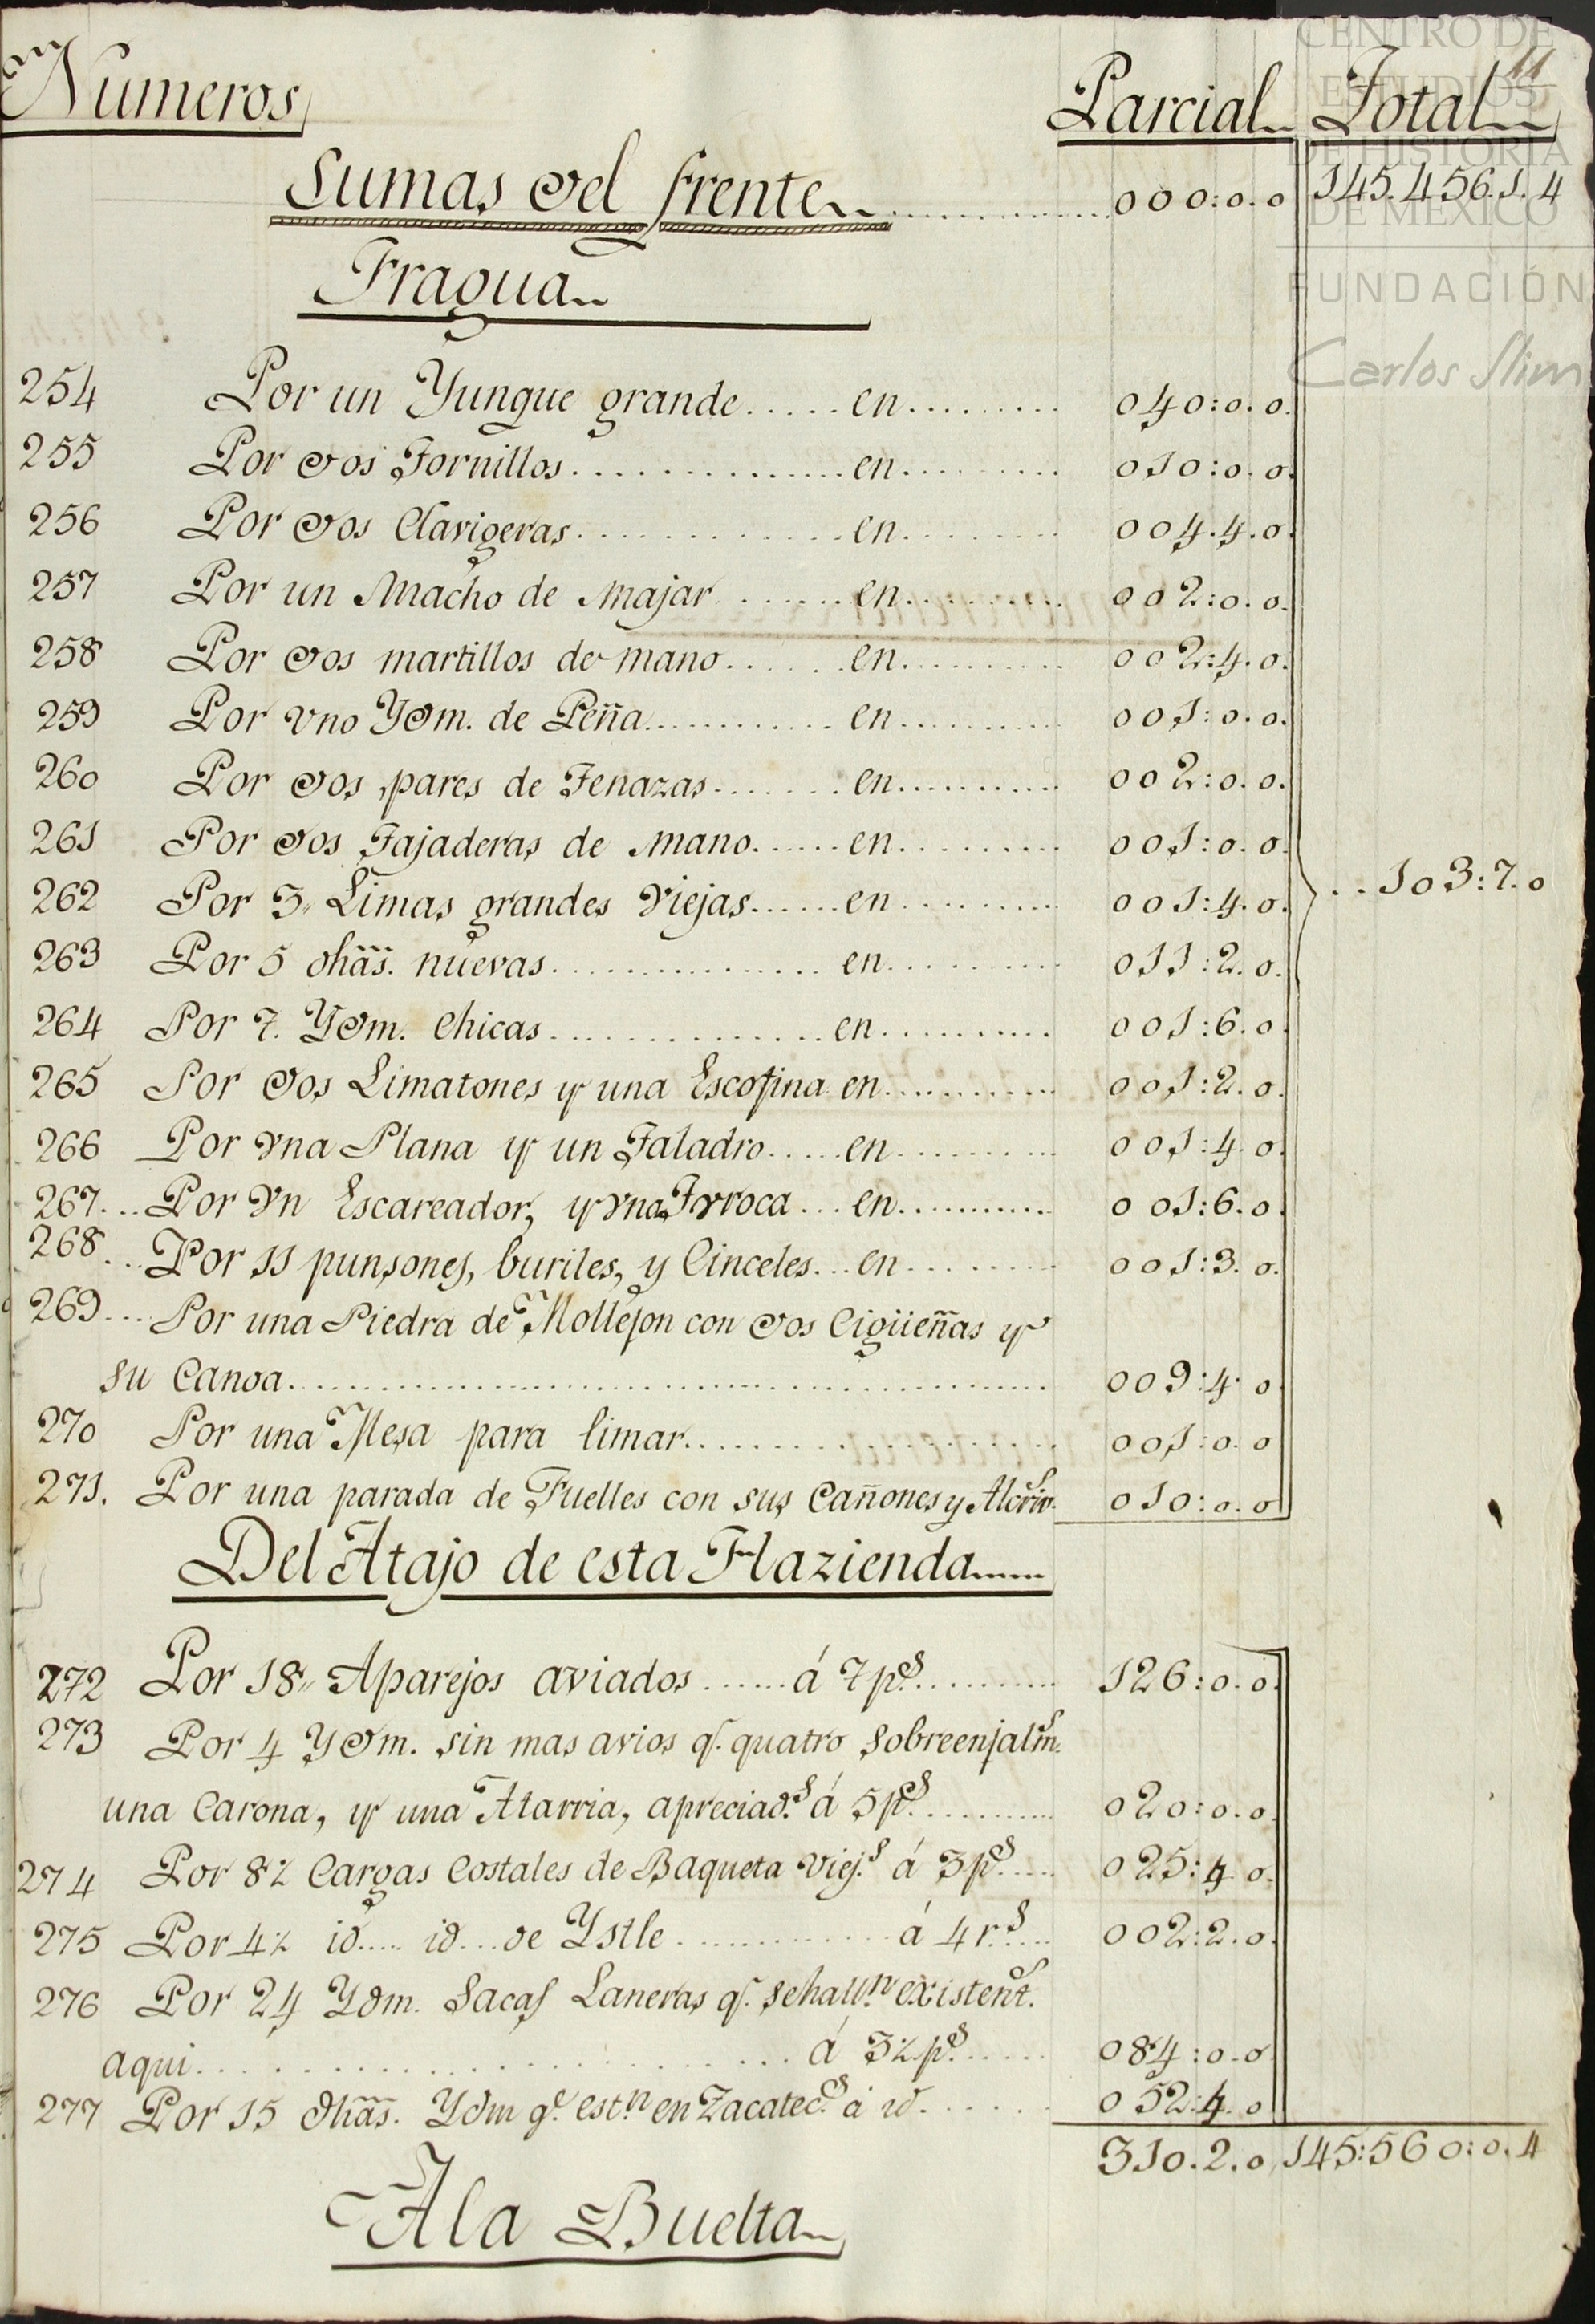 Numeros Parcial Total 11
Sumas del frente 000:0.0 145.456.1.4
Fragua
254 Por un Yunque grande en 040:0.0.
255 Por dos Tornillos en 010:0.0.
256 Por dos Clavigeras en 004.4.0.
257 Por un Macho de Majar en 002:0.0.
258 Por dos martillos de mano en 002:4.0.
259 Por vno Ydm. de Peña en 001:0.0.
260 Por dos pares de Tenazas en 002:0.0.
261 Por dos Tajaderas de Mano en 001:0.0.
262 Por 3 Limas grandes Viejas en 001:4.0. 103:7.0
263 Por 5 dhãs. nuevas en 011:2.0.
264 Por 7. Ydm. Chicas en 001:6.0.
265 Por dos Limatones y una Escofina en 001:2.0.
266 Por vna Plana y un Taladro en 001:4.0.
267 Por Vn Escareador, y vna Trroca en 001:6.0.
268 Por 11 punsones, buriles, y Cinceles en 001:3.0.
269 Por una Piedra de Mollejon con dos Cigüeñas y
su Canoa 009:4.0
270 Por una Mesa para limar 001:0.0
271. Por una parada de Fuelles con sus Cañones y 010:0.0
Del Atajo de esta Hazienda
272 Por 18 Aparejos aviados á 7 ps. 126:0.0.
273 Por 4 Ydm. sin mas avios q. quatro Sobreenjalms.
una Carona, y una Atarria, apreciads. á 5 ps. 020:0.0.
274 Por 8½ Cargas Costales de Baqueta viejs. á 3 ps. 025:4.0.
275 Por 4½ id id de Ystle á 4 rs. 002:2.0.
276 Por 24 Ydm. Sacas Laneras q. se halln. existents.
aqui á 3½ ps. 084:0.0
277 Por 15 dhãs. Ydm qe. estn. en Zacatecs. á id 052:4.0
310.2.0 145:560:0.4
A la Buelta
CENTRO DE
ESTUDIOS
DE HISTORIA
DE MÉXICO
FUNDACIÓN
Carlos Slim